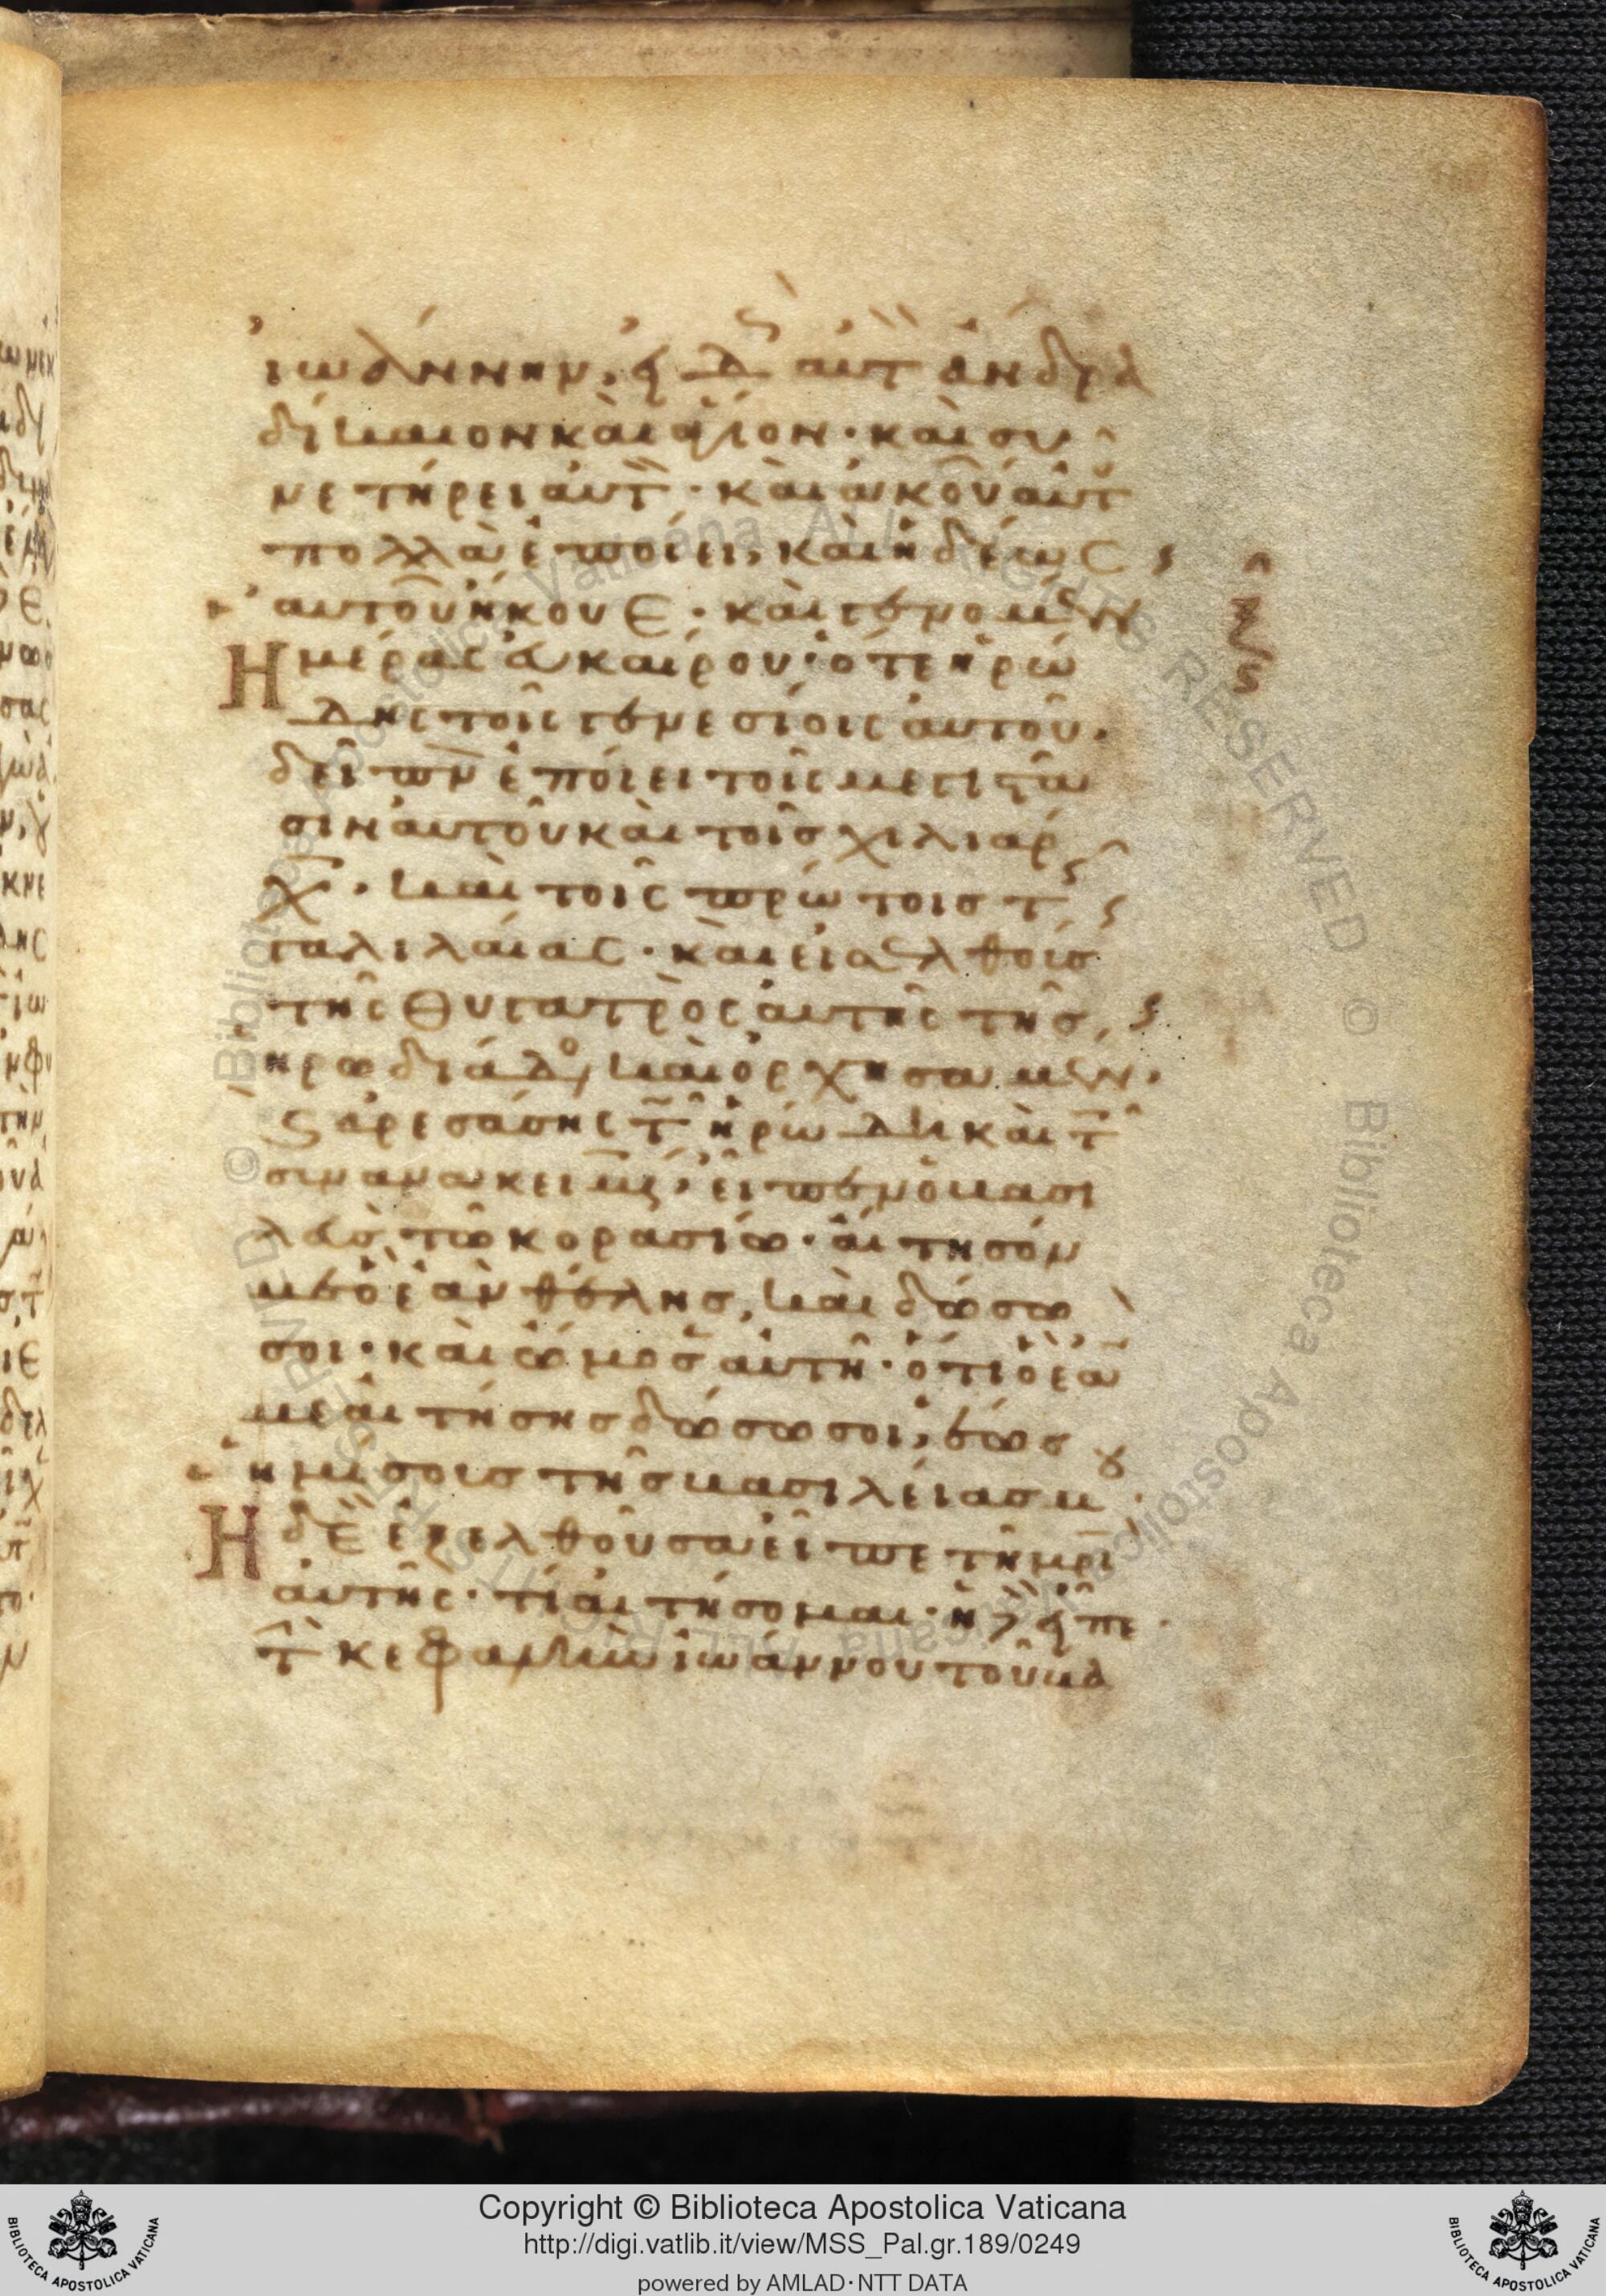 ἰωάννην, εἰδ αὐτ ἄνδρα
δίκαιον καὶ ἅγιον· καὶ συ
νετήρει αὐτ· καὶ ἀκού αὐτ
πολλὰ ἐποίει, καὶ ἡδέως
αὐτοῦ ἤκουε· καὶ γενομεν
Ημέρας εὐκαίρου· ὅτε ἡρώ
δης τοῖς γενεσίοις αὐτοῦ·
δεῖπν ἐποίει τοῖς μεγιστᾶ
σιν αὐτοῦ καὶ τοῖσ χιλιάρ
χ· καὶ τοῖς πρώτοισ τ
γαλιλαίας· καὶ εἰσελθούσ
τῆς θυγατρὸς αὐτῆς τῆσ
ἡρωδιάδο, καὶ ὀρχησαμεν·
καὶ ἀρεσάσης τ ἡρώδη καὶ τ
συνανακειμ, εἶπεν ὁ βασι
λεὺσ τῶ κορασίω· αἴτησόν
με ὃ ἐὰν θέλησ, καὶ δώσω
σοι· καὶ ὤμοσ αὐτῆ· ὅτι ὃ ἐάν
με αἰτήσησ δώσω σοι, ἕωσ
ἡμίσουσ τῆσ βασιλείασ μου·
Η δὲ ἐξελθοῦσα εἶπε τῆ μρι
αὐτῆς· τί αἰτήσομαι· ἡ δὲ εἶπε·
τ κεφαλὴν ἰωάννου τοῦ βα
Copyright © Biblioteca Apostolica Vaticana
http://digi.vatlib.it/view/MSS_Pal.gr.189/0249
powered by AMLAD·NTT DATA
BIBLIOTECA APOSTOLICA VATICANA
BIBLIOTECA APOSTOLICA VATICANA